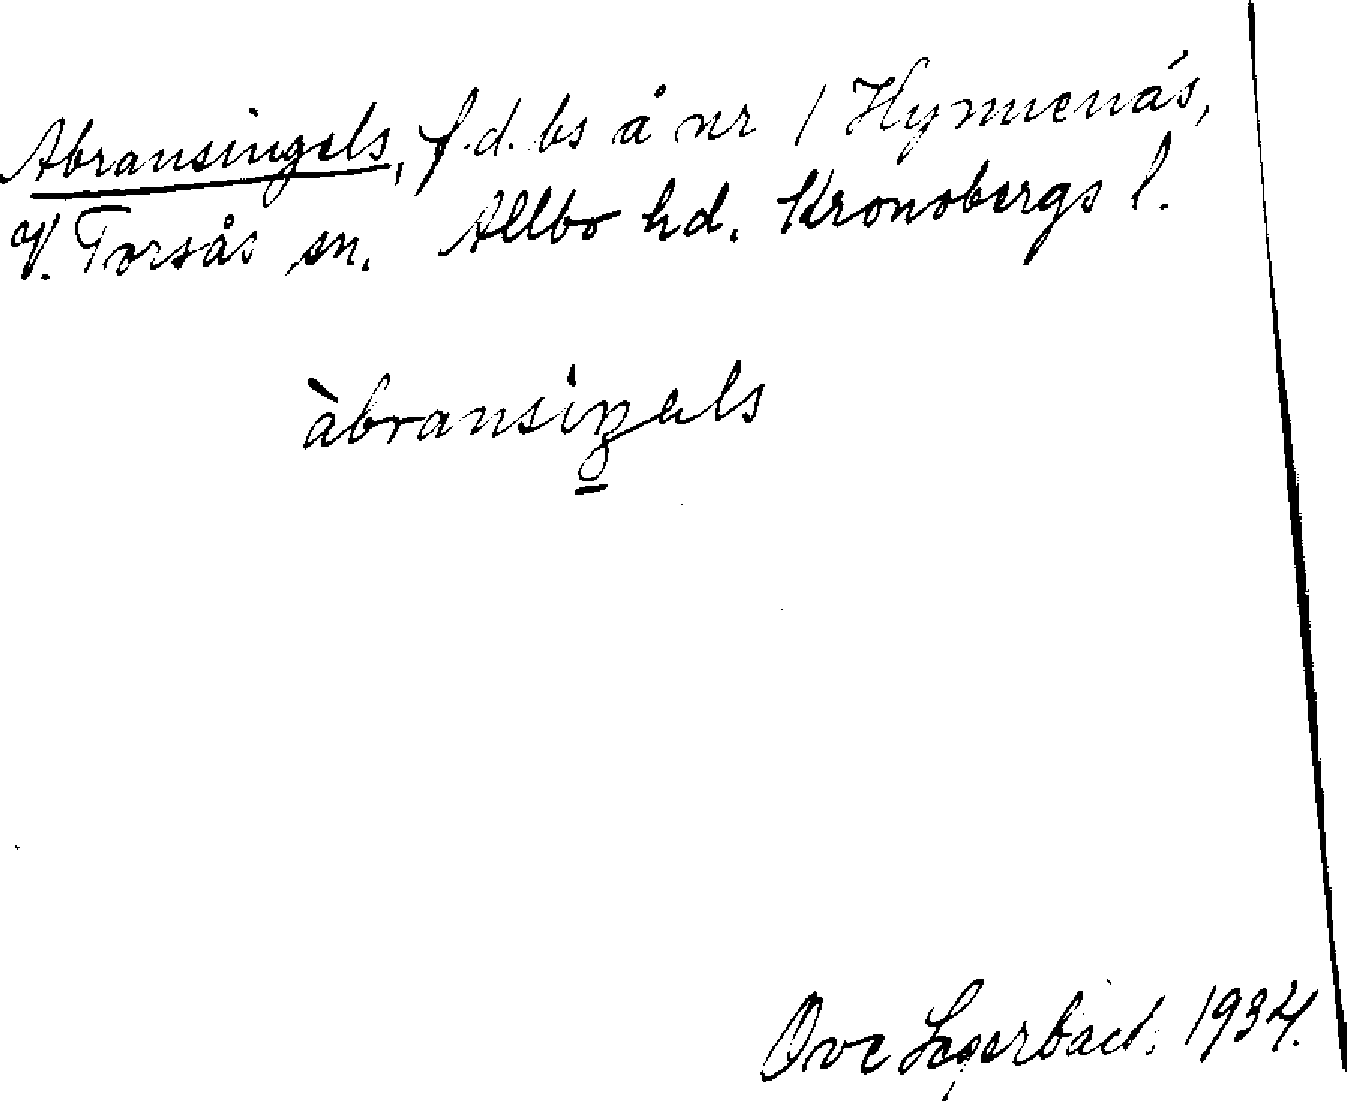 Abransingels, f.d. bs å nr 1 Hynnenäs,
V. Torsås sn. Allbo hd. Kronobergs l.
àbransiŋels
Ove Lagerbäck. 1934.